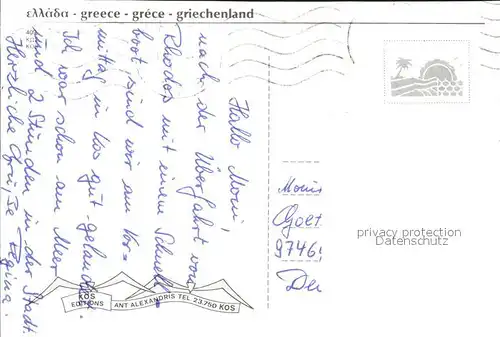 ελλάδα - greece - gréce - griechenland
Hallo Moni,
nach der Überfahrt von
Rhodos mit einem Schnell-
boot sind wir am Vor-
mittag in Kos gut gelandet.
Ich war schon am Meer
und 2 Stunden in der Stadt.
Herzliche Grüße Regina.
Moni
Goet
9746
Deu
privacy protection
Datenschutz
KOS
EDITIONS
ANT ALEXANDRIS TEL 23.750 KOS